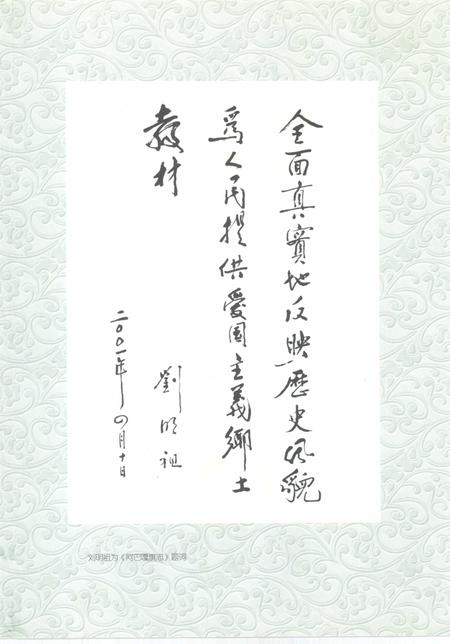 全面真實地反映歷史风貌
爲人民提供愛国主義鄉土
教材
劉明祖
二〇〇一年四月十日
刘明祖为《阿巴嘎旗志》题词